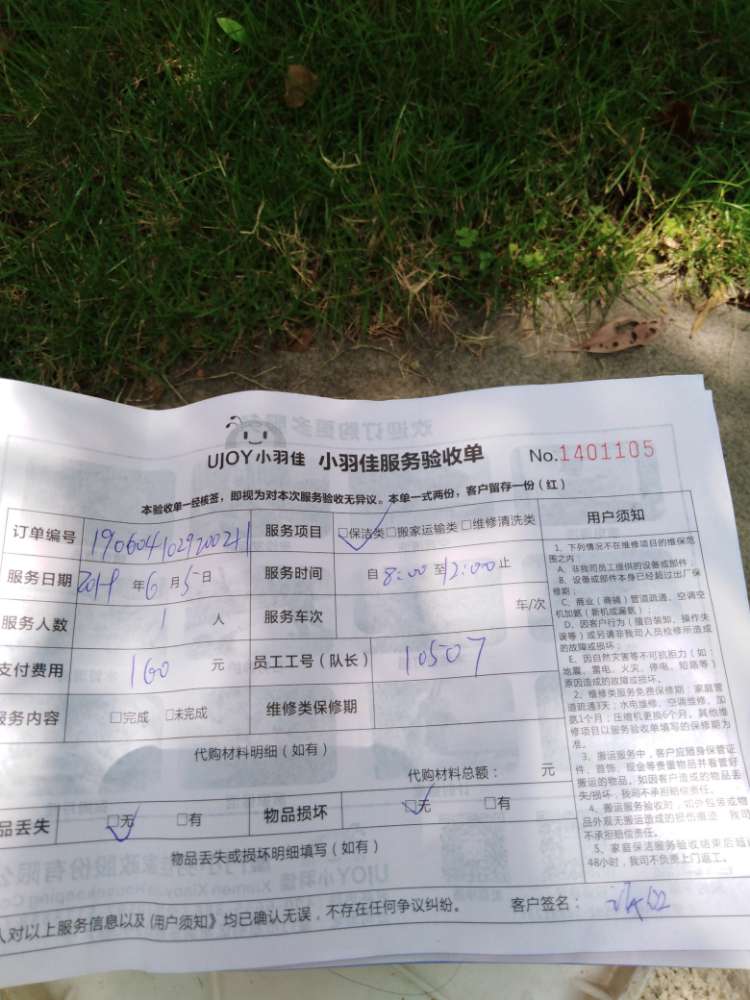 UJOY小羽佳 小羽佳服务验收单 No.1401105
本验收单一经核签，即视为对本次服务验收无异议。本单一式两份，客户留存一份（红）
订单编号 190604102920021 服务项目 □保洁类□搬家运输类□维修清洗类
服务日期 2019 年 6 月 5 日 服务时间 自 8:00 至 12:00 止
服务人数 1 人 服务车次 车/次
支付费用 160 元 员工工号（队长） 10507
服务内容 □完成 □未完成 维修类保修期
代购材料明细（如有）
代购材料总额： 元
品丢失 □无 □有 物品损坏 □无 □有
物品丢失或损坏明细填写（如有）
人对以上服务信息以及《用户须知》均已确认无误，不存在任何争议纠纷。 客户签名：
用户须知
1、下列情况不在维修项目的维保范
围之内：
A、非我司员工提供的设备或部件
B、设备或部件本身已经超过出厂保
修期；
C、商业（商铺）管道疏通、空调空
机加氟（新机或漏氟）；
D、因客户行为（擅自装卸、操作失
误等）或另请非我司人员检修所造成
的故障或损坏；
E、因自然灾害等不可抗拒力（如：
地震、雷电、火灾、停电、短路等）
原因造成的故障或损坏。
2、维修类服务免费保修期：家庭管
道疏通3天；水电维修、空调维修、加
氟1个月；压缩机更换6个月。其他维
修项目以服务验收单填写的保修期为
准。
3、搬运服务中，客户应随身保管证
件、首饰、现金等贵重物品并看管好
搬运的物品，如因客户造成的物品丢
失/损坏，我司不承担赔偿责任。
4、搬运服务验收时，如外包装或物
品外观无搬运造成的损伤痕迹，我司
不承担赔偿责任。
5、家庭保洁服务验收结束后超过
48小时，我司不负责上门返工。